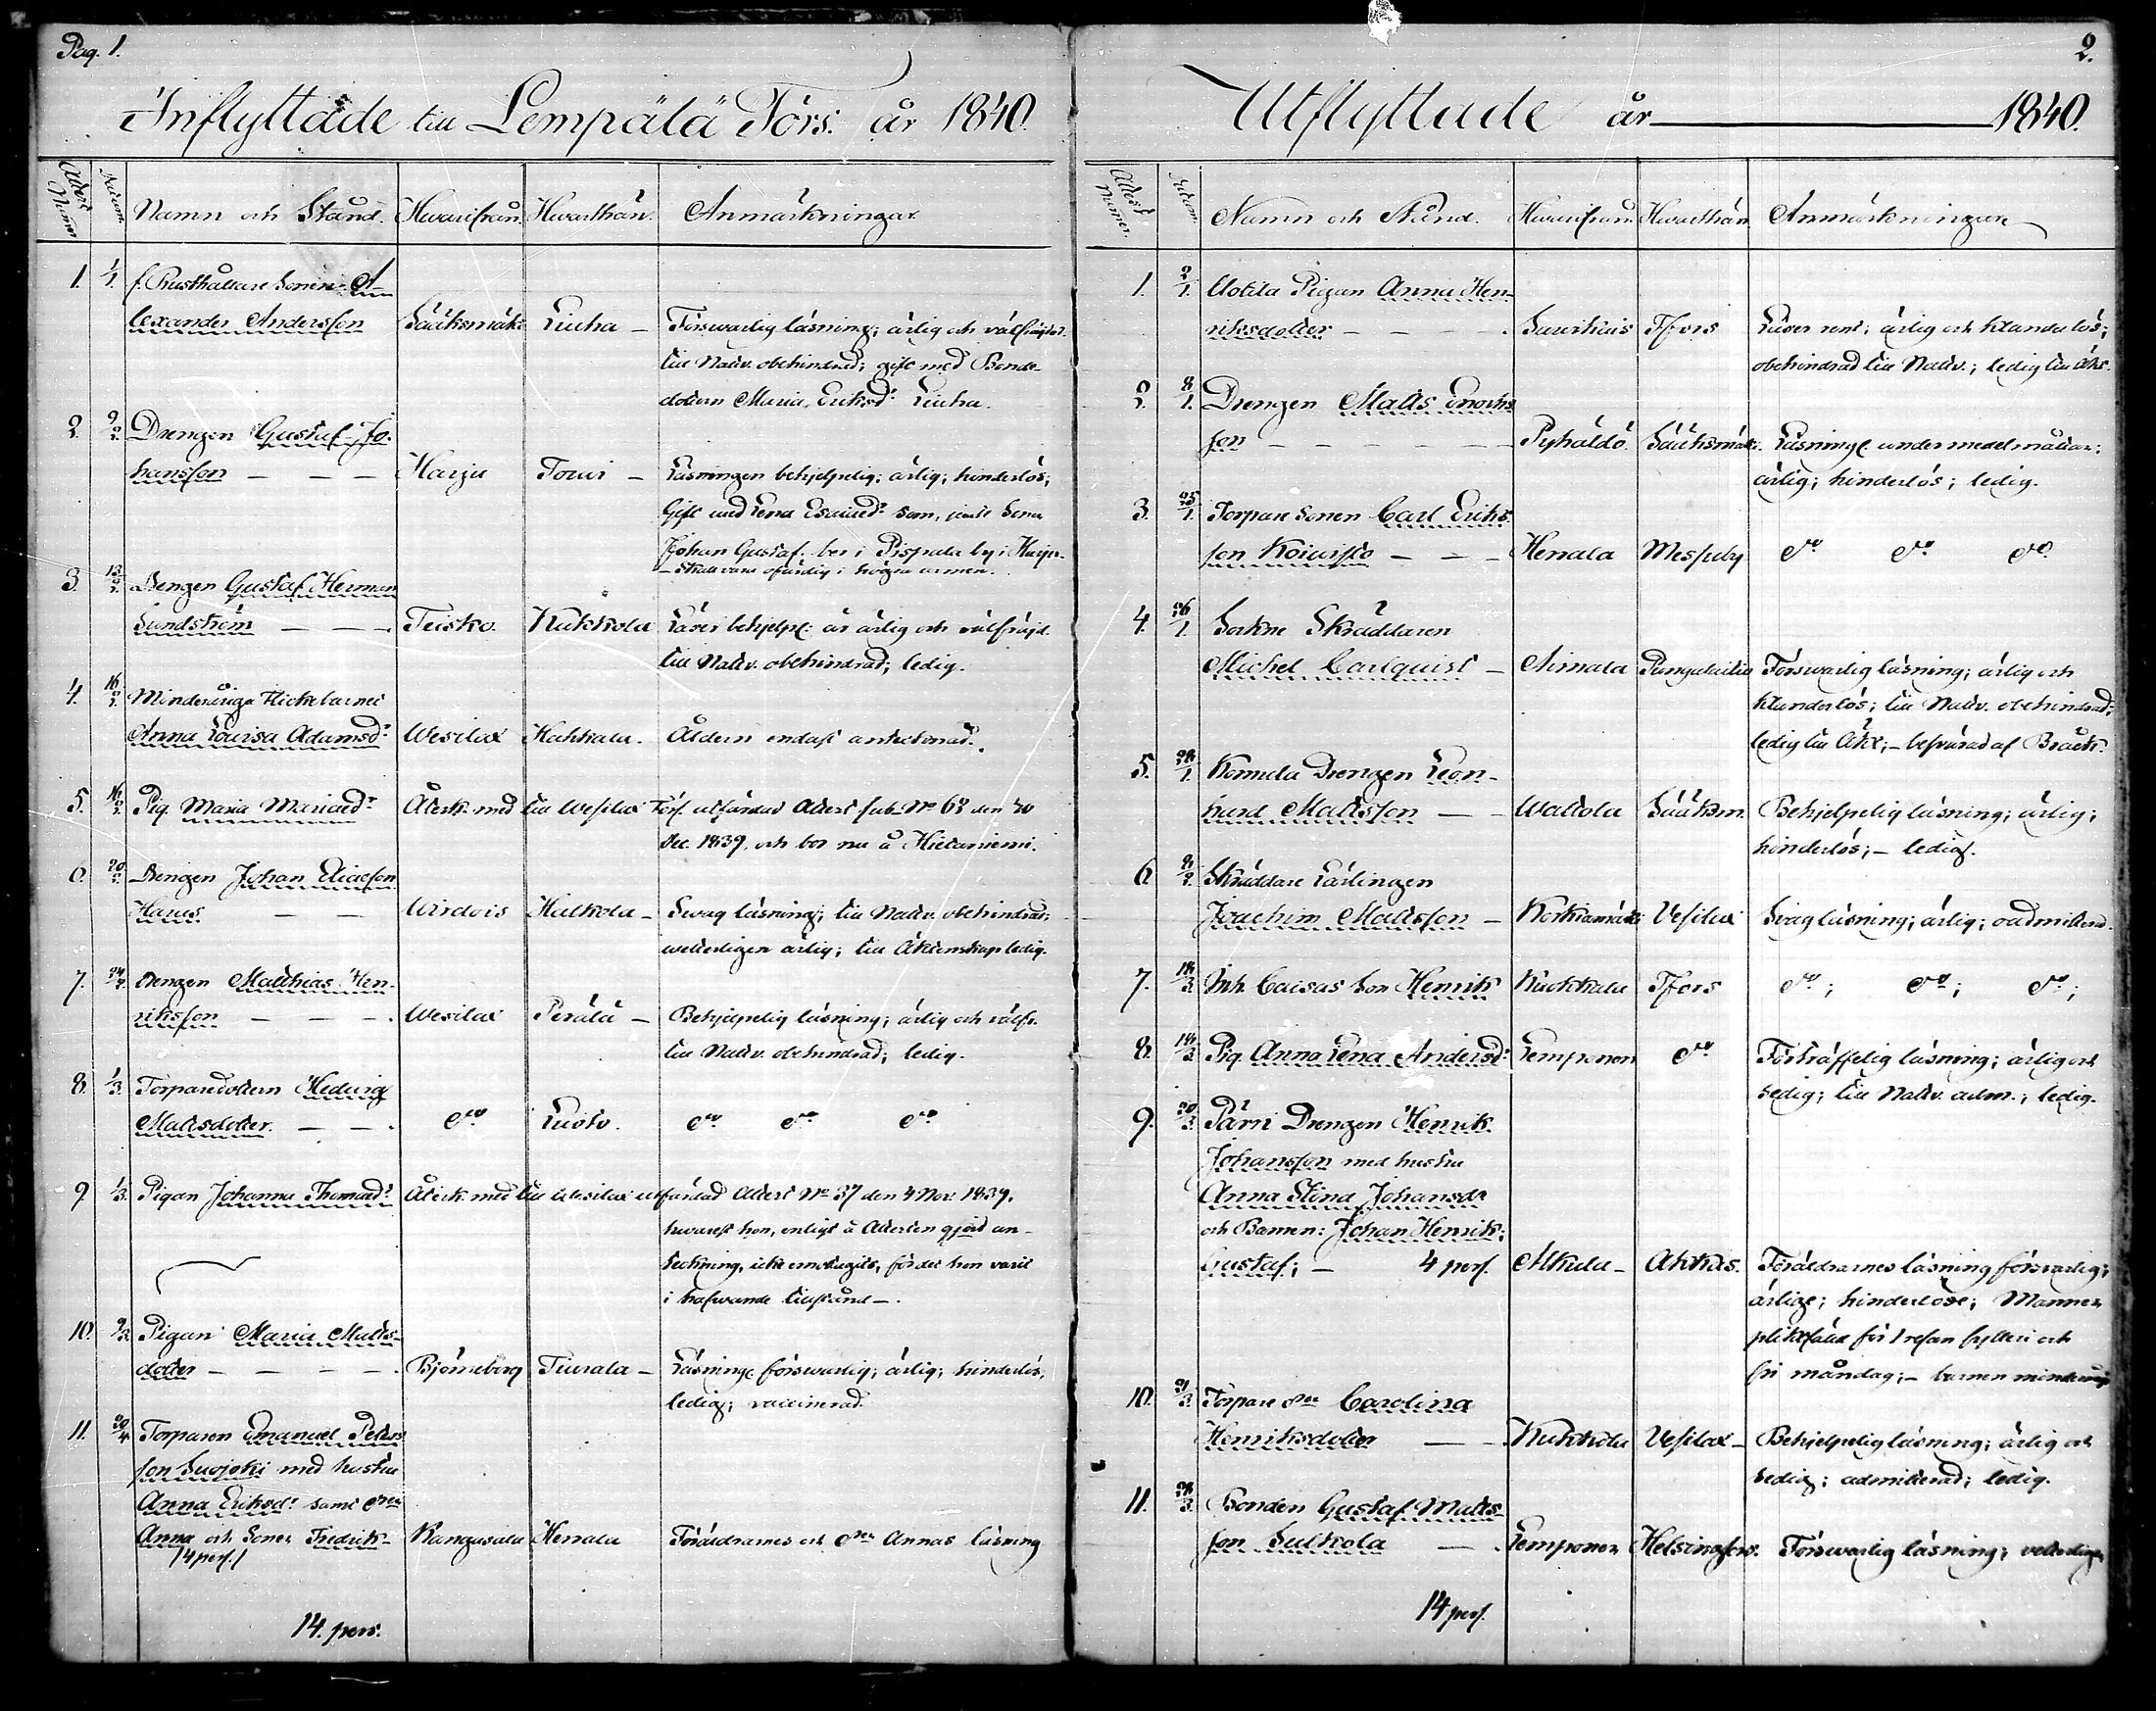 Pag. 1.
Inflyttade till Lempälä Förs. år 1840.
Attest Numer
Datum
Namn och Stånd.
Hvarifrån.
Hvarthän.
Anmärkningar
1. 1/1. f. Rusthållare Sonen A-
lexander Andersson Sääksmäki Liuha – Försvarlig läsning; ärlig och välfräjdat.
till Nattv. obehindrad; gift med Bonde-
dottern Maria Eriksdr Liuha.
2. 9/2. Drengen Gustaf Jo-
hansson – – – Harju Toivi – Läsningen behjelpelig; ärlig; hinderlös;
Gift med Lena Esaiaedr som, jemte Sonen
Johan Gustaf bor i Pispala by i Harju.
– Skall vara ofärdig i högra armen.
3. 13/2. Drengen Gustaf Herman
Sundström – – – Teisko. Kukkola Läser behjelpl: är ärlig och välfräjd.
till Nattv. obehindrad; ledig.
4. 16/2. Minderåriga Flickebarnet
Anna Lovisa Adamsdr Wesilax Hahkala. Åldern endast antecknad.
5. 16/2. Pig. Maria Mariaedr Återk. med till Wesilax Förs. utfärdad Attest sub No 63 den 30
Dec. 1839. och bor nu å Hietaniemi.
6. 20/2. Drengen Johan Eliaeson
Harus – – Virdois Hälkola – Svag läsning; till Nattv. obehindrad;
vetterligen ärlig; till Äktenskap ledig.
7. 24/2. Drengen Matthias Hen-
riksson – – – Wesilax Perälä – Behjelpelig läsning; ärlig och välfr.
till Nattv. obehindrad; ledig.
8. 1/3. Torparedottern Hedvig
Mattsdotter. – – do Kuoto. do do do
9 1/3. Pigan Johanna Thomaedr Återk. med till Wesilax utfärdad Attest No 37 den 4 Nov. 1839.
hvarest hon, enligt å Attesten gjord an-
teckning, icke emottagits, för det hon varit
i hafwande tillstånd –.
10. 9/3. Pigan Maria Matts-
dotter – – – – Björneborg Tiurala – Läsninge försvarlig; ärlig; hinderlös;
ledig; vaccinerad.
11. 20/4 Torparen Emanuel Peters-
son Suojoki med hustru
Anna Eriksdr samt dren
Anna och Sonen Fredrik – Kangasala Herrala Föräldrarnes och dren Annas läsning
/4 pers./
14. pers.
2.
Utflyttade år 1840.
Attest Numer.
Datum
Namn och Stånd.
Hvarifrån.
Hvarthän
Anmärkningar
1. 2/1. Uotila Pigan Anna Hen-
riksdotter – – – – Tfors Läser rent; ärlig och klanderlös;
obehindrad till Nattv.; ledig till äkt.
2. 8/1. Drengen Matts Enochs
son – – – – – Pyhältö Sääksmäki. Läsninge under medelmåttan:
ärlig; hinderlös; ledig.
3. 25/1. Torpare Sonen Carl Eriks
son Koivisto – – – Herrala Messuby do do do
4. 26/1. Sockne Skräddaren
Michel Carlquist – Aimala Försvarlig läsning; ärlig och
klanderlös; till Nattv. obehindrad;
ledig till Äkt;– besvärad af Bråck.
5. 28/1. Komula Drengen Leon-
hard Mattsson – – Wattola Sääksm. Behjelpelig läsning; ärlig;
hinderlös;– ledig.
6. 8/2. Skräddare Lärlingen
Joachim Mattsson – Korkiamäki Vesilax Svag läsning; ärlig; oadmitterad.
7. 18/3. Inh. Caisas Son Henrik Kuokkala Tfors do; do; do;
8. 18/3. Pig. Anna Lena Andersdr Lemponen do Förträffelig läsning; ärlig och
sedig; till Nattv. adm.; ledig.
9. 20/3. Pärri Drengen Henrik
Johansson med hustru
Anna Stina Johansdr
och Barnen: Johan Henrik;
Gustaf; – 4 pers. Alkula – Akkas. Föräldrarnes läsning försvarlig;
ärlige; hinderlöse; Mannen
pliktfälld för 1 resan fylleri och
fri måndag;– barnen minderårige
10. 21/3. Torpare dren Carolina
Henriksdotter – – Kukkola Vesilax – Behjelpelig läsning; ärlig och
sedig; admitterad; ledig.
11. 28/3. Bonden Gustaf Matts-
son Sulkola – – Lemponen Helsingfors. Försvarlig läsning; vetterligen
14 pers.